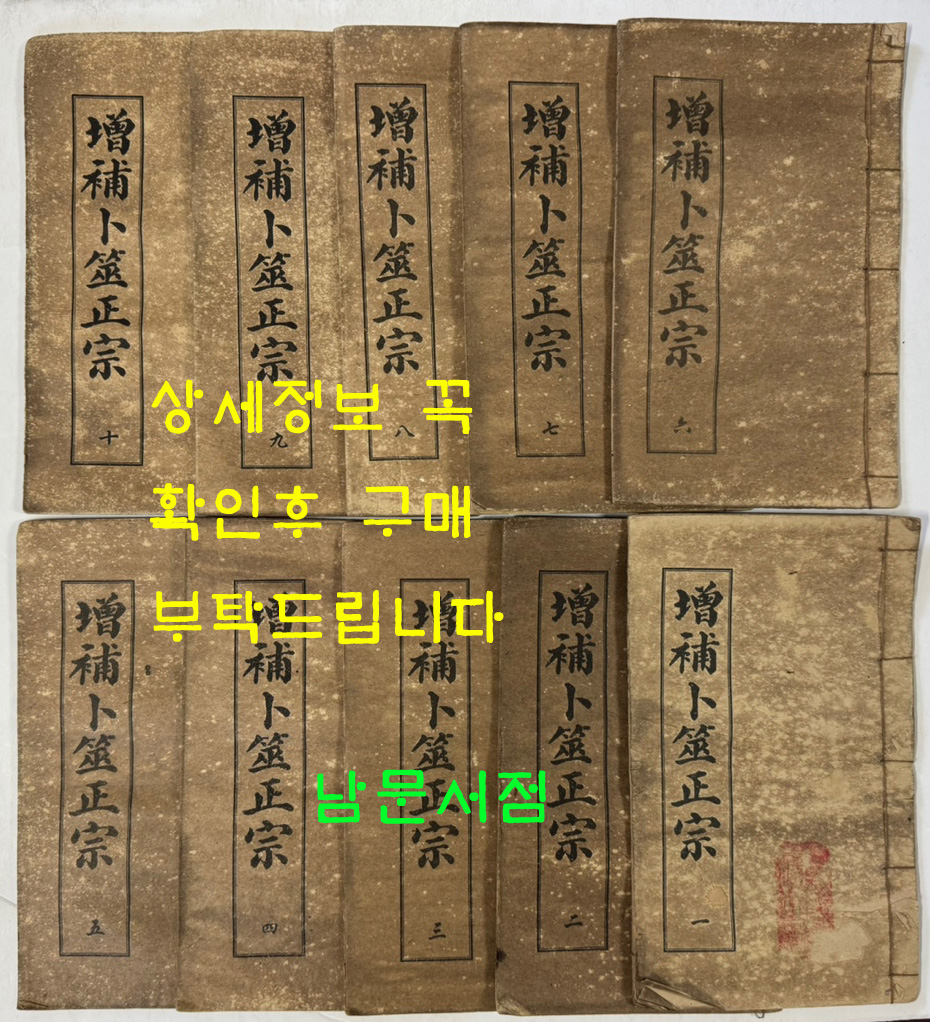 增補卜筮正宗 十
增補卜筮正宗 九
增補卜筮正宗 八
增補卜筮正宗 七
增補卜筮正宗 六
상세정보 꼭
확인후 구매
부탁드립니다
增補卜筮正宗 五
增補卜筮正宗 四
增補卜筮正宗 三
增補卜筮正宗 二
增補卜筮正宗 一
남문서점